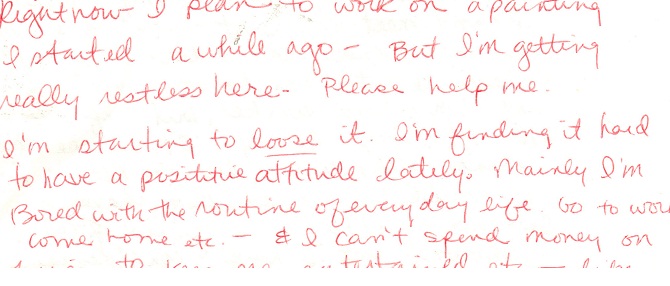 Right now I plan to work on a painting
I started a while ago - But I'm getting
really restless here - Please help me.
I'm starting to loose it. I'm finding it hard
to have a positive attitude lately. Mainly I'm
Bored with the routine of everyday life. Go to work
come home etc. - & I can't spend money on
to keep me entertained etc - like